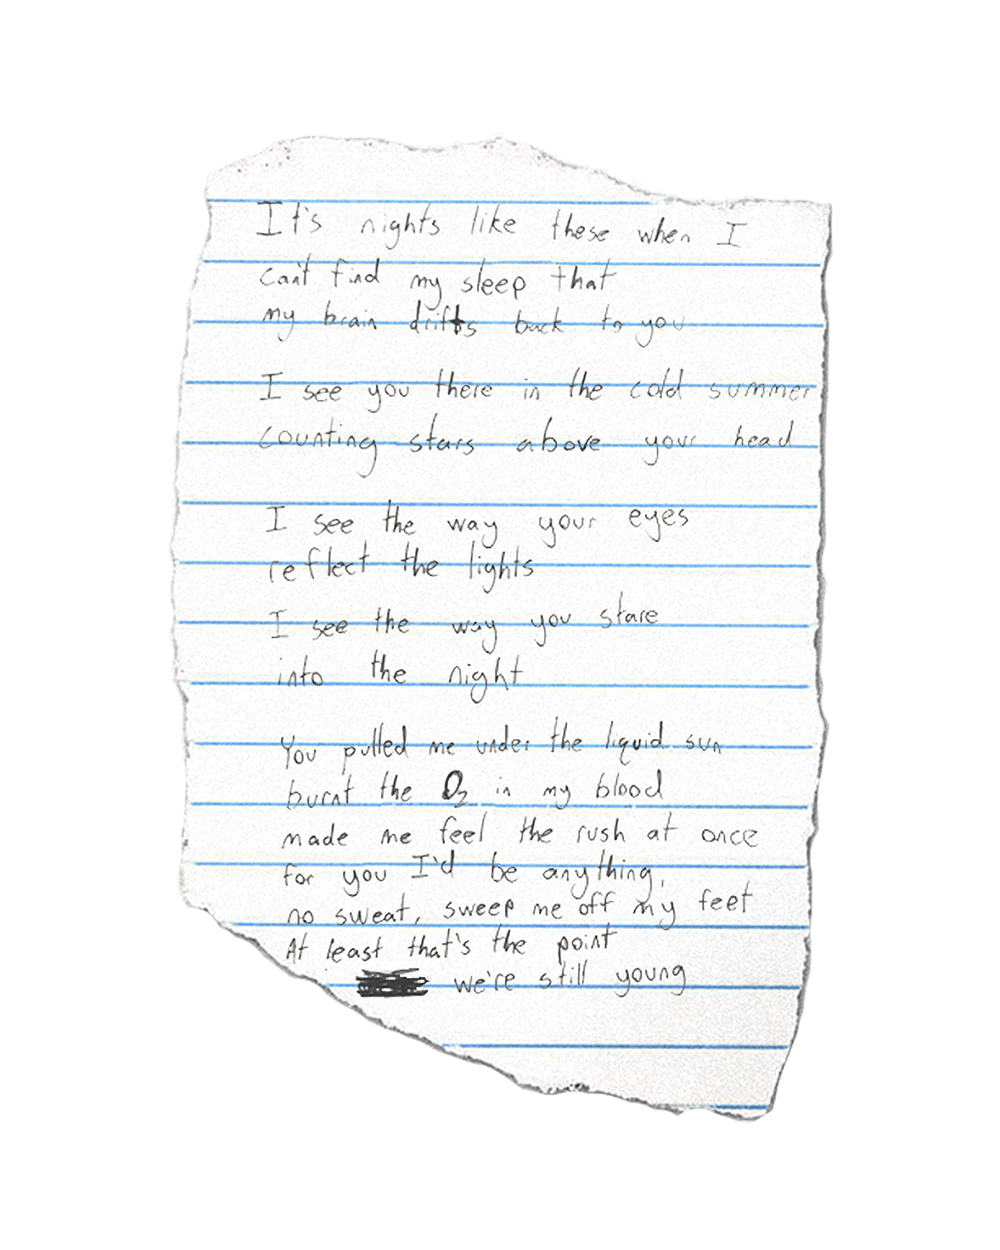 It's nights like these when I
can't find my sleep that
my brain drifts back to you
I see you there in the cold summer
counting stars above your head
I see the way your eyes
reflect the lights
I see the way you stare
into the night
You pulled me under the liquid sun
burnt the O₂ in my blood
made me feel the rush at once
for you I'd be anything,
no sweat, sweep me off my feet
At least that's the point
we're still young